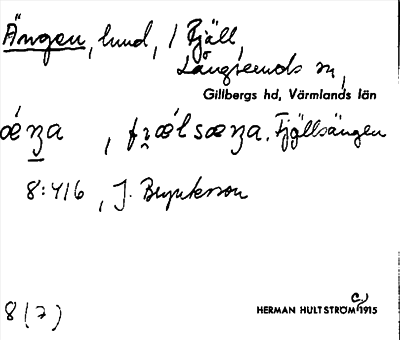 Ängen, lund, i Fjäll,
Långseruds sn,
Gillbergs hd, Värmlands län
Fjällsängen
8:416, J. Bryntesson
8(7)
HERMAN HULTSTRÖM C) 1915